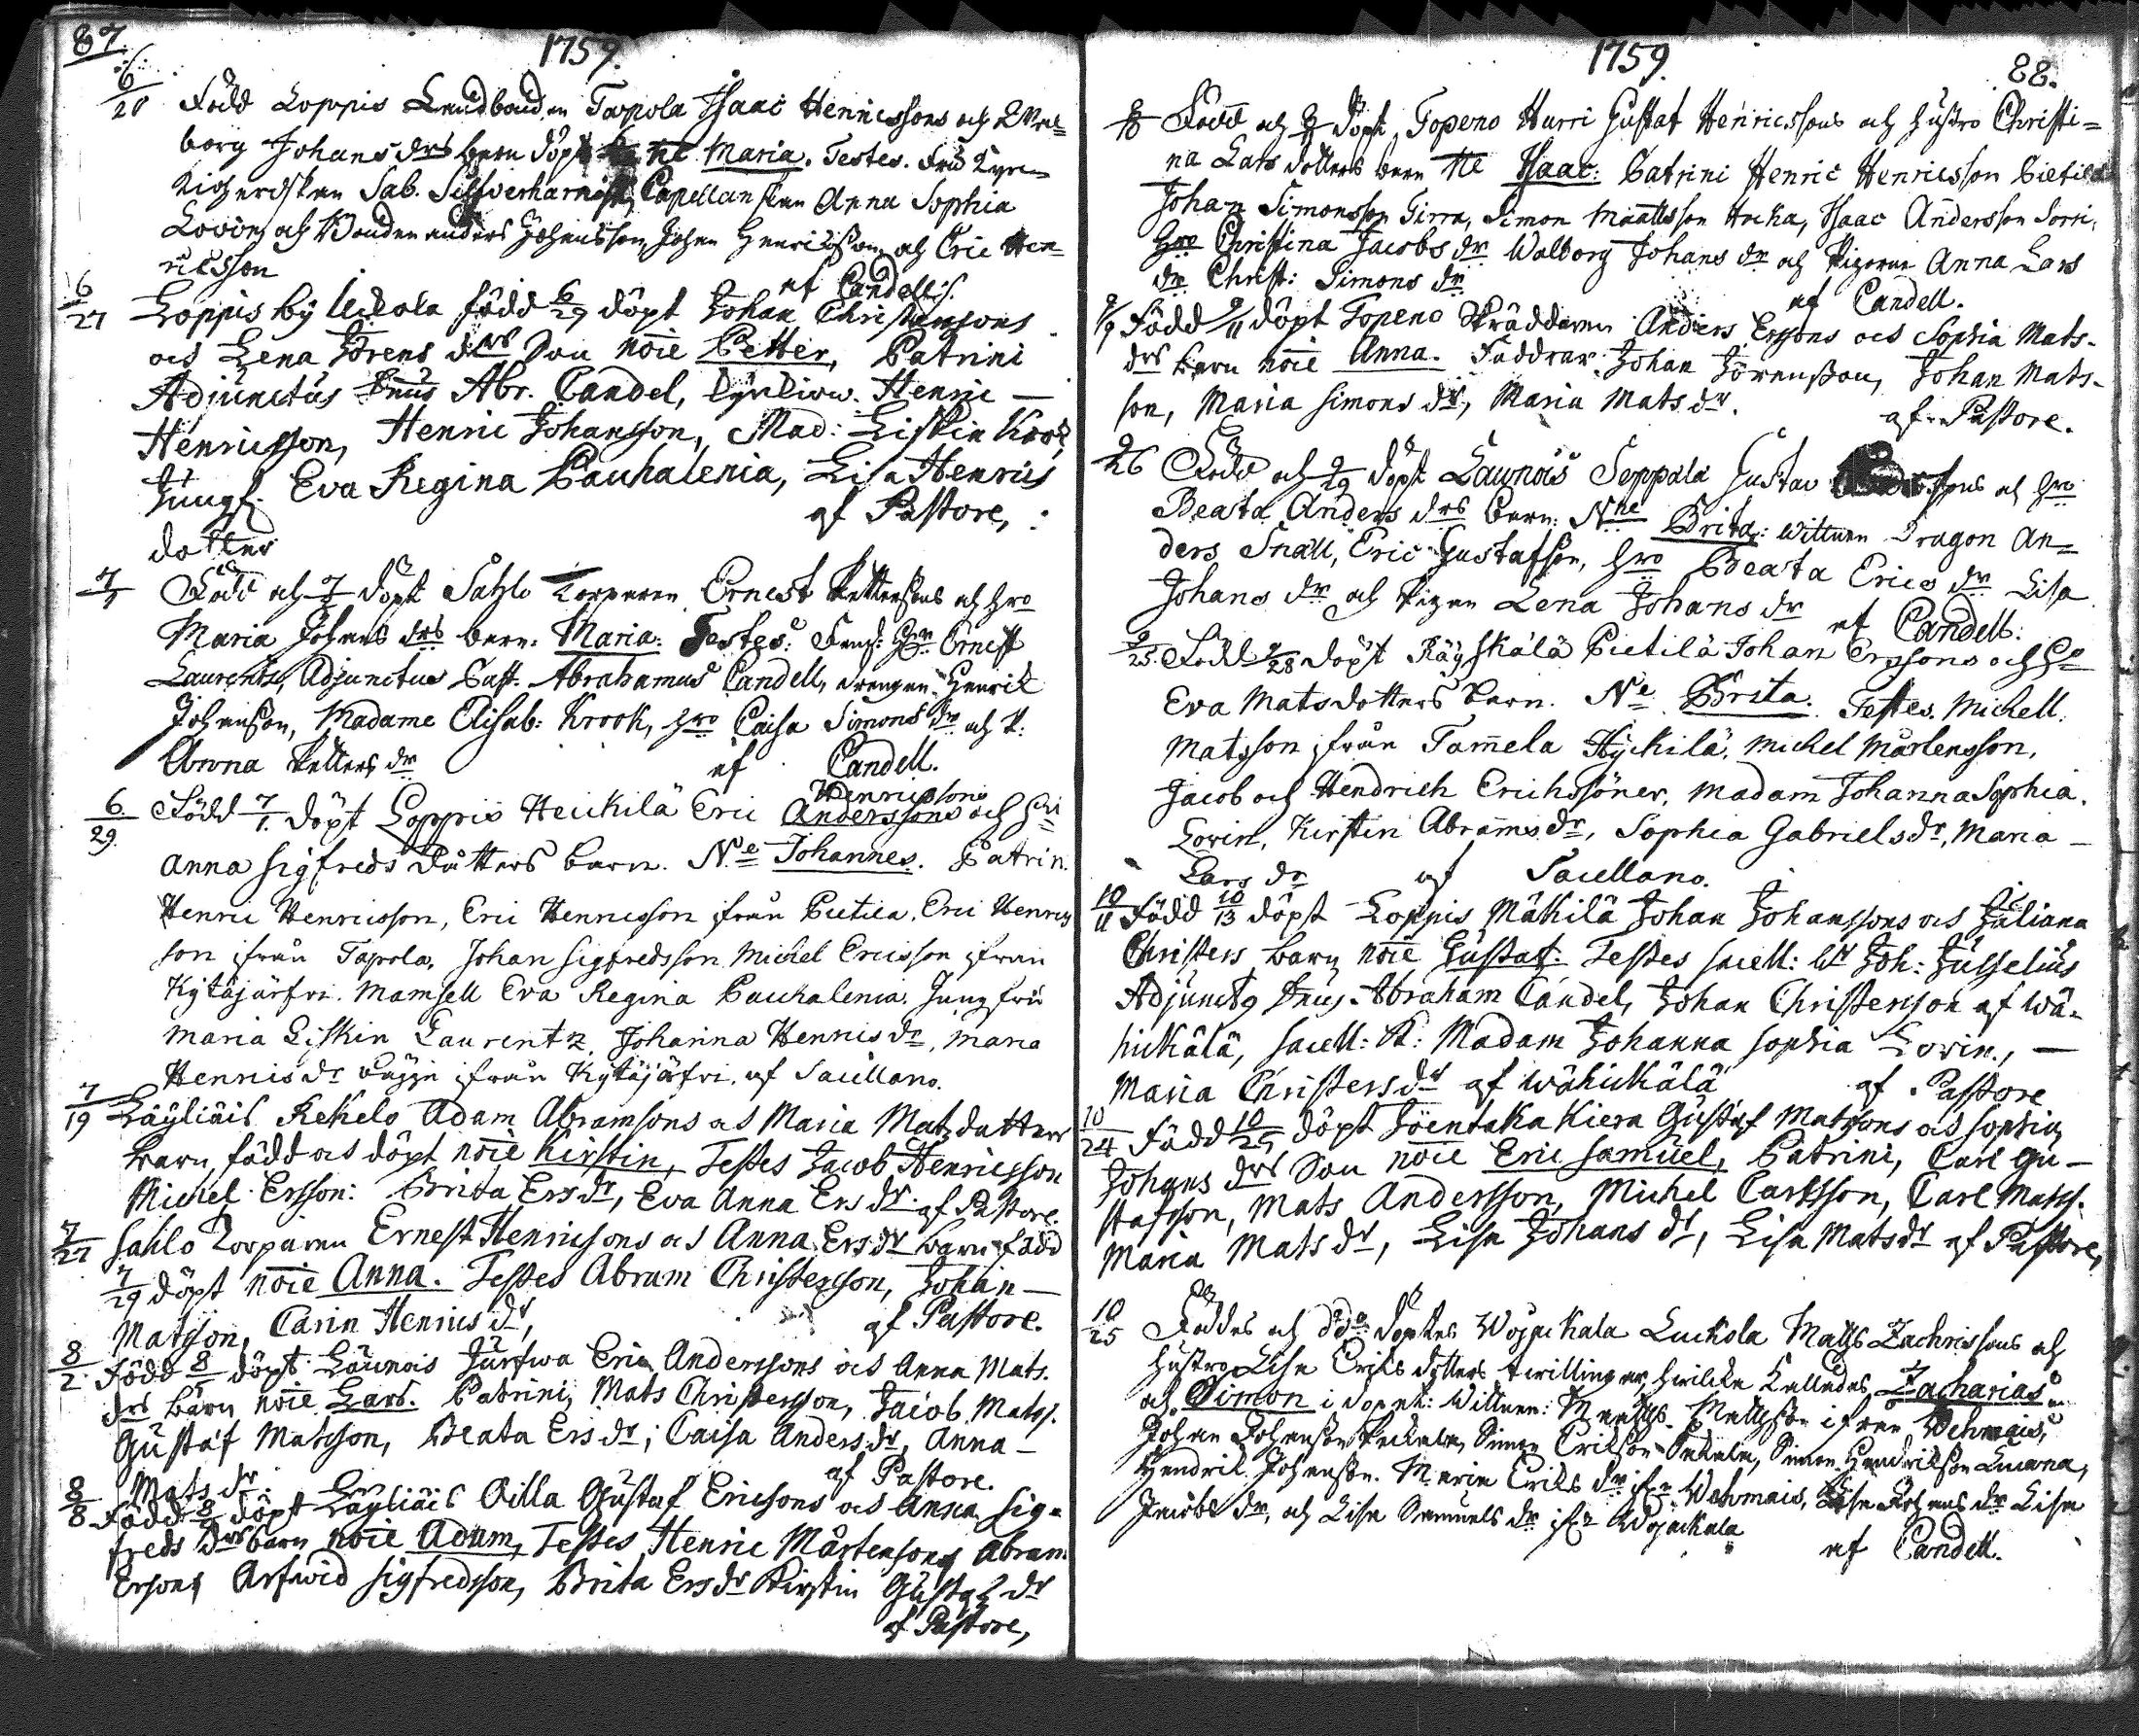 87.
1759.
6/20 Född Loppis Landbonden Tapola Isaac Henricssons och Wal=
borg Johans drs barn döpt Ne Maria. Testes. Fru Kyrc=
Capellanskan Anna Sophia
Lovin, och Bonden Anders Johansson, Johan Henricsson och Eric Hen=
ricsson
af Candell.
6/27 Loppis by Uckola född 6/29 döpt Johan Christersons
och Lena Jörens drs Son noie Petter, Patrini
Adjunctus Dnus Abr. Candel, Henric —
Henricsson, Henric Johansson, Mad: Liskin Krok,
Jungf. Eva Regina Pauhalenia, Lisa Henrics
dotter
af Pastore,
7/1 Född och 7/ döpt Sahlo Torparen Ernest Pettersons och Hro
Maria Johans drs barn. Maria. Testes: Ernest
Laurentz, Adjunctus Past. Abrahamus Candell, drengen Henrik
Johansson, Madame Elisab: Krook, Hro Caisa Simons dr och P.
Anna Petters dr af Candell.
6/29. Född 7/1. döpt Loppis Heickilä Eric Henricssons Anderssons och H
Anna Sigfreds Dotters barn. Ne Johannes. Patrin.
Henric Henricsson, Eric Henricsson ifrån Pietila, Eric Henrics
son ifrån Tapola, Johan Sigfredsson Michel Ericsson ifrån
Kytäjärfvi. Mamsell Eva Regina Pauhalenia, Jungfru
Maria Liskin Laurentz, Johanna Henricsdr, Maria
Henricsdr ifrån Kytäjärfvi. af Sacellano.
7/19 Läyliäis Kekelo Adam Abramsons och Maria Matsdotters
barn, född och döpt noie Kirstin, Testes Jacob Henricsson
Michel Ersson: Brita Ersdr, Eva Anna Ersdr af Pastore.
7/27 Sahlo Torparen Ernest Henricsons och Anna Ersdr barn född
7/29 döpt noie Anna. Testes Abram Christersson, Johan —
Matsson, Carin Henricsdr, af Pastore.
8/2. Född 8/ döpt Launois Jurfwa Eric Anderssons och Anna Mats.
drs barn noie Lars. Patrini, Mats Christersson, Jacob Matss.
Gustaf Matsson, Beata Ersdr; Caisa Andersdr, Anna —
Mats dr. af Pastore.
8/8 Född 8/ döpt Läyliäis Ailla Gustaf Ericsons och Anna Sig=
freds drs barn noie Adam, Testes Henric Mårtensons, Abram
Ersons, Arfwid Sigfredsson, Brita Ersdr Kirstin Gustaf dr
af Pastore,
1759.
88.
Född och döpt, Topeno Hurri Gustaf Henricssons och hustro Christi=
na Lars dotters barn Ne Isaac: Patrini Henric Henricsson Pietilä
Johan Simonsson Girra, Simon Mattsson Hucka, Isaac Andersson Sorri,
Hro Christina Jacobs dr Walborg Johans dr och Pigorna Anna Lars
dr Christ: Simons dr
af Candell.
9/9 Född 9/11 döpt Topeno Skräddaren Anders Ersons och Sophia Mats.
drs barn noie Anna. Faddrar: Johan Jörensson, Johan Mats.
son, Maria Simons dr, Maria Mats dr. af Pastore.
9/26 Född och 9/29 döpt Launois Seppala Gustav och Hro
Beata Anders drs barn: Nne Brita: Wittnen Dragon An=
ders Snäll, Eric Gustafson, Hro Beata Erics dr Lisa
Johans dr och Pigan Lena Johans dr
af Candell:
9/25. Född 9/28 döpt Räyskälä Pietilä Johan Erssons och Ho
Eva Matsdotters barn. Ne Brita. Testes. Michell.
Matsson ifrån Tammela Hyckilä, Michel Mårtensson,
Jacob och Hendrich Erichssöner, Madam Johanna Sophia.
Lovin, Kirstin Abramsdr, Sophia Gabrielsdr, Maria —
Lars dr af Sacellano.
10/11 Född 10/13 döpt Loppis Mäkilä Johan Johanssons och Juliana
Christers barn noie Gustaf. Testes Sacell: Joh: Jusselius
Adjunctg Dnus Abraham Candel, Johan Christerson af Wä=
hickälä, Sacell: K: Madam Johanna Sophia Lovin, —
Maria Christersdr af Wähickälä af Pastore
10/24 Född 10/25 döpt Joentaka Kiera Gustaf Matssons och Sophia
Johans drs Son noie Eric Samuel, Patrini, Carl Gu—
stafsson, Mats Andersson, Michel Carlsson, Carl Matss.
Maria Mats dr, Lisa Johans dr, Lisa Matsdr af Pastore,
10/25 Föddes och ddo döptes Wojackala Luckola Matts Zachrissons och
hustro Lisa Eriks dotters twillingar, hwilcka kallades Zacharias
och Simon i dopet: Wittnen: Matts Mattsson ifrån Wehmais,
Johan Johansson Simon Ericsson Simon Hendrikson
Hendrik Johansson. Maria Eriks dr ifr Wehmais, Lisa Johans dr Lisa
Jacobs dr, och Lisa Samuels dr ifr Wojackala
af Candell.